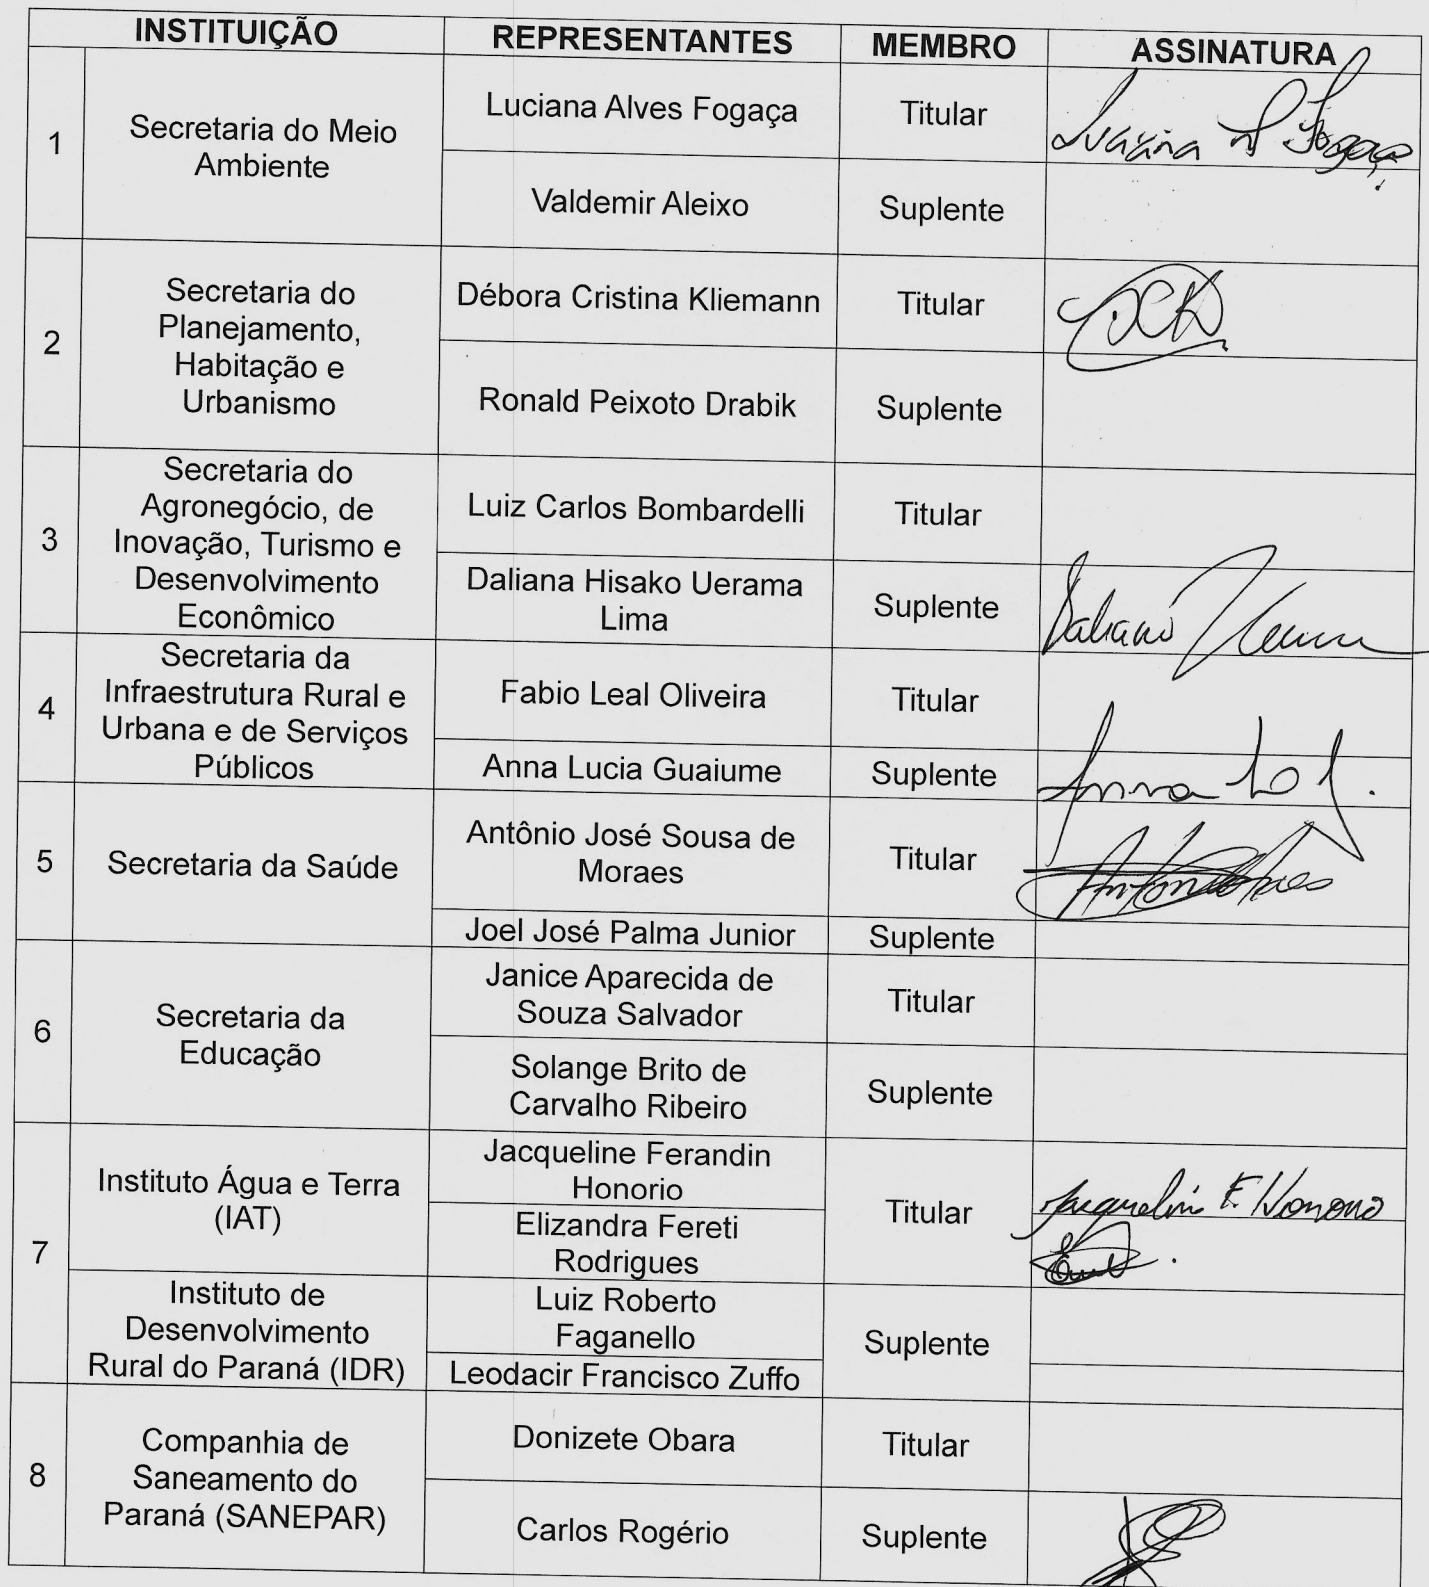 INSTITUIÇÃO REPRESENTANTES MEMBRO ASSINATURA
1
Secretaria do Meio
Ambiente
Luciana Alves Fogaça
Titular
Luciana A Fogaça
Valdemir Aleixo
Suplente
2
Secretaria do
Planejamento,
Habitação e
Urbanismo
Débora Cristina Kliemann
Titular
DCK
Ronald Peixoto Drabik
Suplente
3
Secretaria do
Agronegócio, de
Inovação, Turismo e
Desenvolvimento
Econômico
Luiz Carlos Bombardelli
Titular
Daliana Hisako Uerama
Lima
Suplente
4
Secretaria da
Infraestrutura Rural e
Urbana e de Serviços
Públicos
Fabio Leal Oliveira
Titular
Anna Lucia Guaiume
Suplente
Anna
5
Secretaria da Saúde
Antônio José Sousa de
Moraes
Titular
Joel José Palma Junior
Suplente
6
Secretaria da
Educação
Janice Aparecida de
Souza Salvador
Titular
Solange Brito de
Carvalho Ribeiro
Suplente
7
Instituto Água e Terra
(IAT)
Jacqueline Ferandin
Honorio
Elizandra Fereti
Rodrigues
Titular
Jacqueline F. Honorio
Instituto de
Desenvolvimento
Rural do Paraná (IDR)
Luiz Roberto
Faganello
Leodacir Francisco Zuffo
Suplente
8
Companhia de
Saneamento do
Paraná (SANEPAR)
Donizete Obara
Titular
Carlos Rogério
Suplente